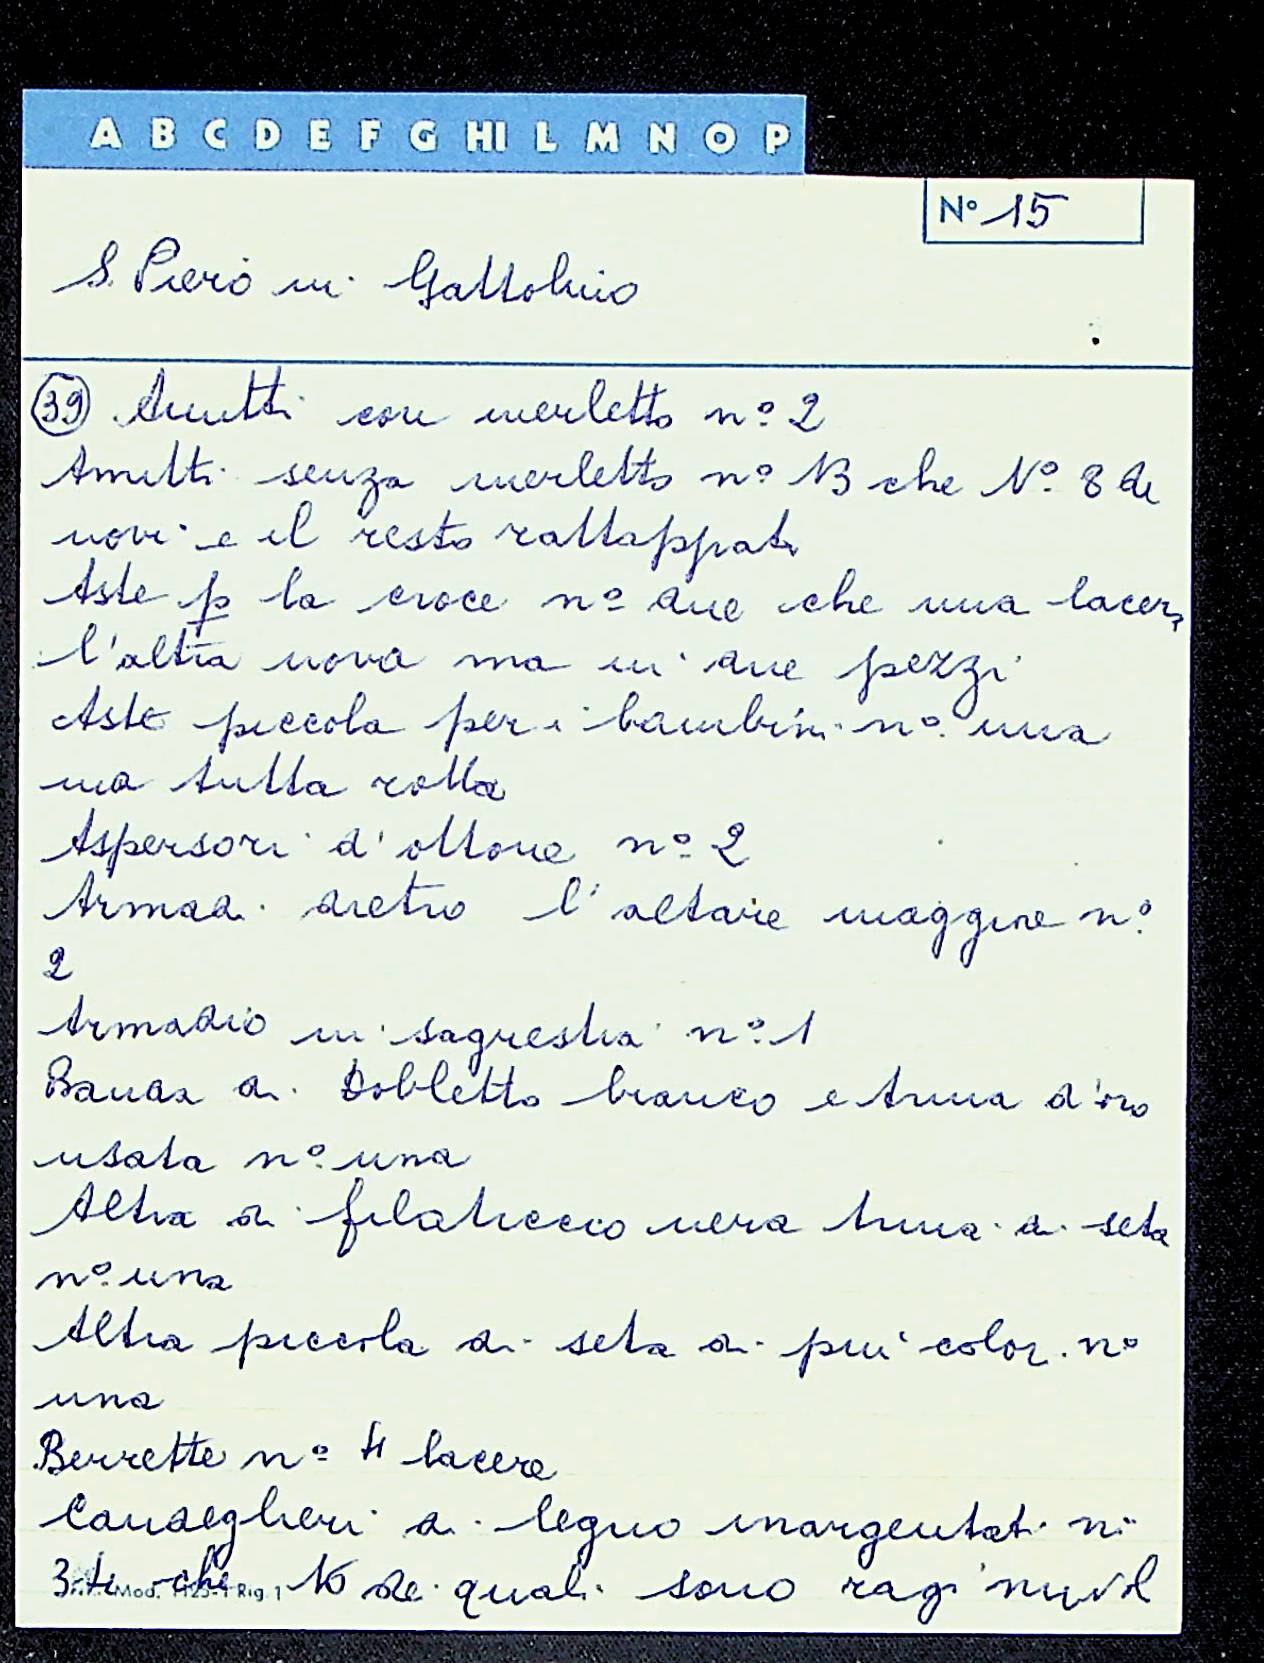 A B C D E F G HI L M N O P
Nº 15
S. Piero in Gattolino
39 Amitti con merletto nº 2
Amitti senza merletto nº 13 che Nº 8 di
novi e il resto rattappati
Aste p la croce nº due che una lacera
l'altra nova ma in due pezzi
Aste piccola per i bambini nº una
ma tutta rotta
Aspersori d'ottone nº 2
Armadi dietro l'altare maggire nº
2
Armadio in sagrestia nº 1
Banda di Dobletto bianco e trina d'oro
usata nº una
Altra di filaticcio nera trina di seta
nº una
Altra piccola di seta di più color. nº
una
Berrette nº 4 lacere
Candeglieri di legno inargentati nº
34 che 10 de quali sono
Mod. Rig. 1